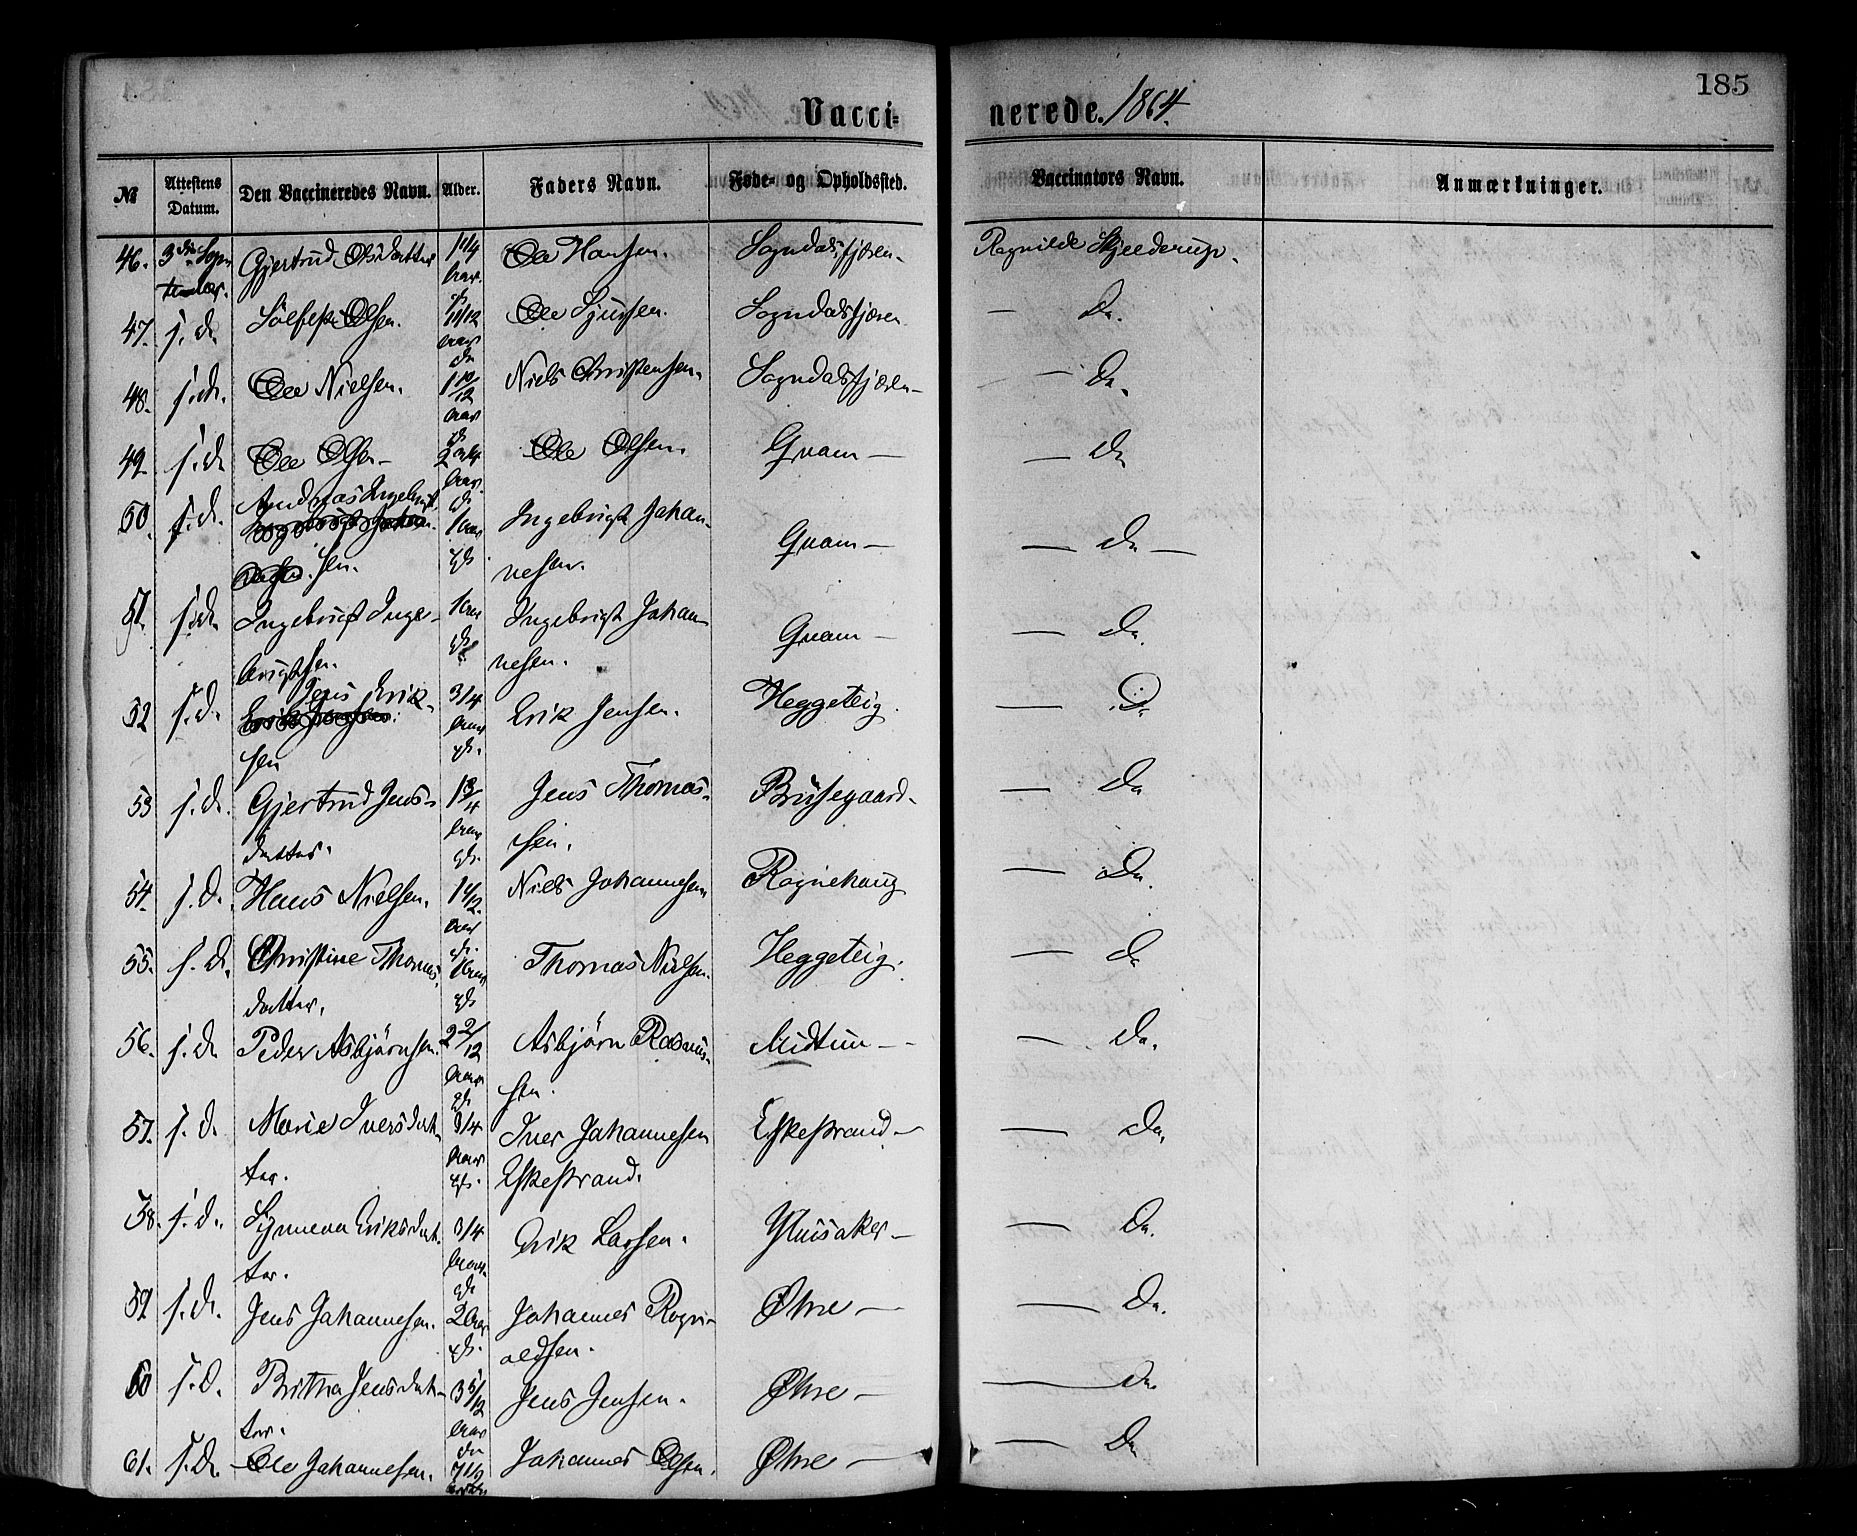 185
Vacci- nerede. 1864.
№ Attestens Datum. Den Vaccineredes Navn. Alder. Faders Navn. Føde- og Opholdssted. Vaccinators Navn. Anmærkninger.
46. 3die Septembr. Gjertrud Olsdatter Ole Hansen. Sogndalsfjæren. Ragnilde Skjelderup.
47. s. d. Ole Sjursen. Sogndalsfjæren — Do.
48. s. d. Ole Nielsen. 1 10/12 Aar Niels Christensen. Sogndalsfjæren — — Do.
49 s. d. Ole Olsen Ole Olsen. Qvam — — Do
50. s. d. Andreas Ingebrigt
sen. 1 Aar Ingebrigt Johan-
nesen. Qvam — — Do —
51. s. d. Ingebrigt Inge-
brigtsen. 1 Aar Ingebrigt Johan-
nesen. Qvam — — Do.
52 s. d. Jens Erik-
sen 3/4 Aar Erik Jensen. Heggeteig. — Do
53 s. d. Gjertrud Jens-
datter. 1 3/4 Aar Jens Thomas-
sen. Brusegaard. — Do
54. s. d. Hans Nielsen. Niels Johannesen Rognehaug — Do.
55. s. d. Christine Thomas-
datter. 1 Aar Thomas Nielsen. Heggeteig. — do
56. s. d. Peder Asbjørnsen. 2 2/12 Aar Asbjørn Rasmus-
sen. Midtun — — Do.
57. s. d. Marie Iversdat-
ter. 3/4 Aar Iver Johannesen
Eskestrand. Eskestrand — — Do.
58. s. d. Synneva Eriksdat-
ter. 3/4 Aar Erik Larsen. — Do.
59 s. d. Jens Johannesen. 2 Aar Johannes Rogn-
aldsen. Øhre — — Do.
60 s. d. Britha Jensdat-
ter. 3 5/12 Aar Jens Jensen. Øhre — — Do
61. s. d. Ole Johannesen. Johannes Olsen. Øhre — — Do